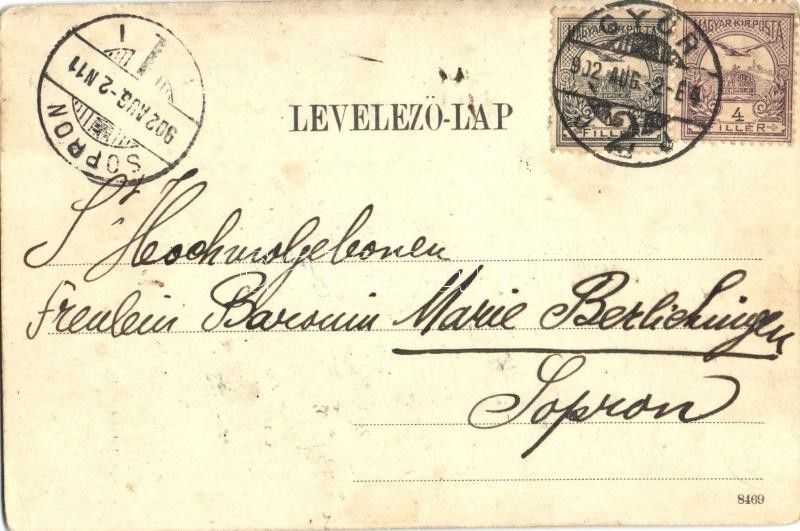 MAGYAR KIR. POSTA
2 FILLÉR
MAGYAR KIR. POSTA
4 FILLÉR
GYŐR
902 AUG. 2-E
SOPRON
902 AUG.-2.N11
LEVELEZŐ-LAP
Hochwolgebonen
Freulein Baronin Marie Berlichingen
Sopron
8469